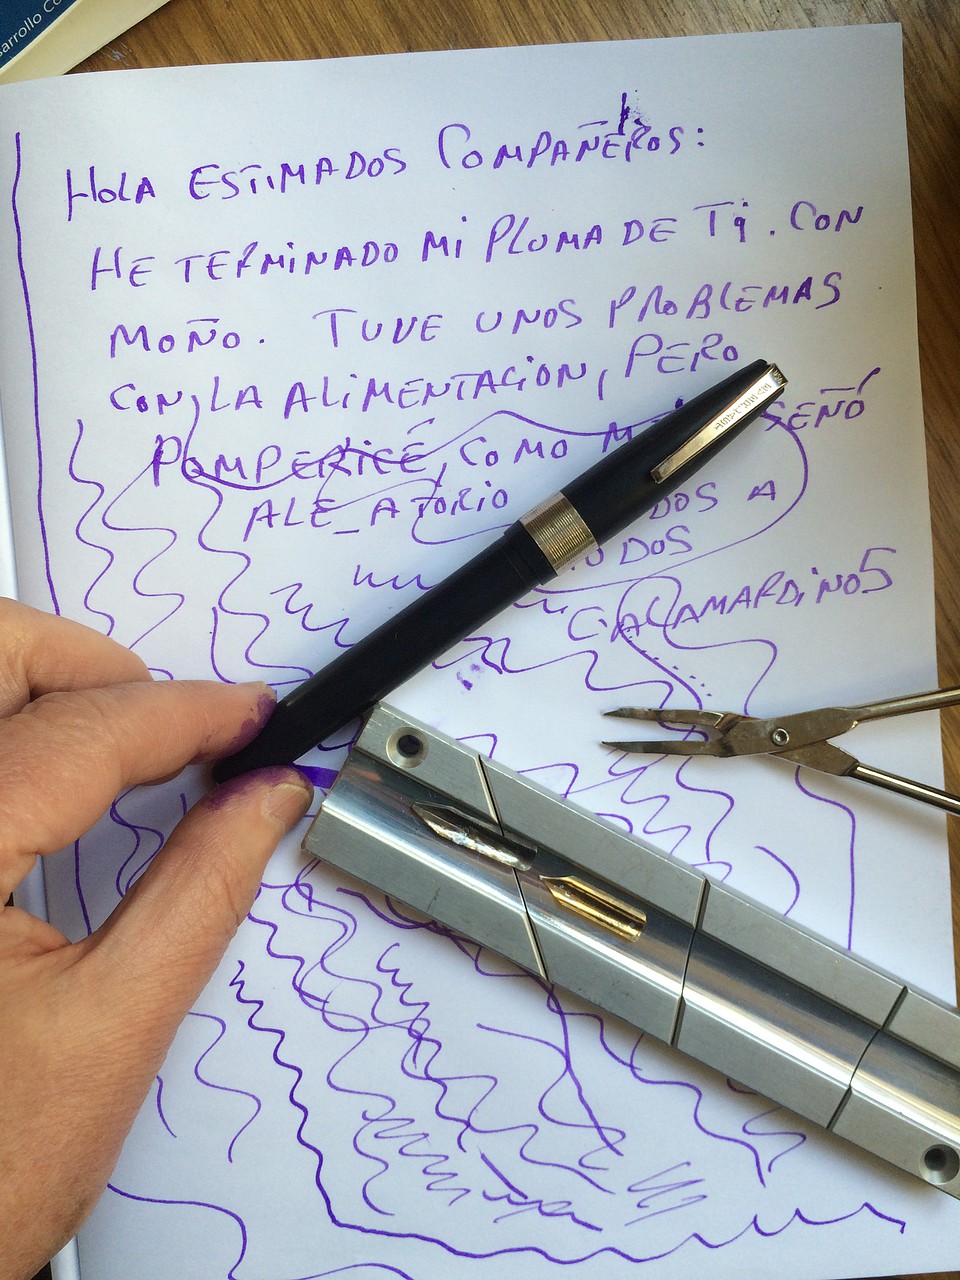 arrollo Co
HOLA ESTIMADOS COMPAÑEROS:
HE TERMINADO MI PLUMA DE Ti. CON
MOÑO. TUVE UNOS PROBLEMAS
CON LA ALIMENTACION, PERO
COMO SEÑÓ
ALE_ATORIO DOS A
CALAMARDINOS